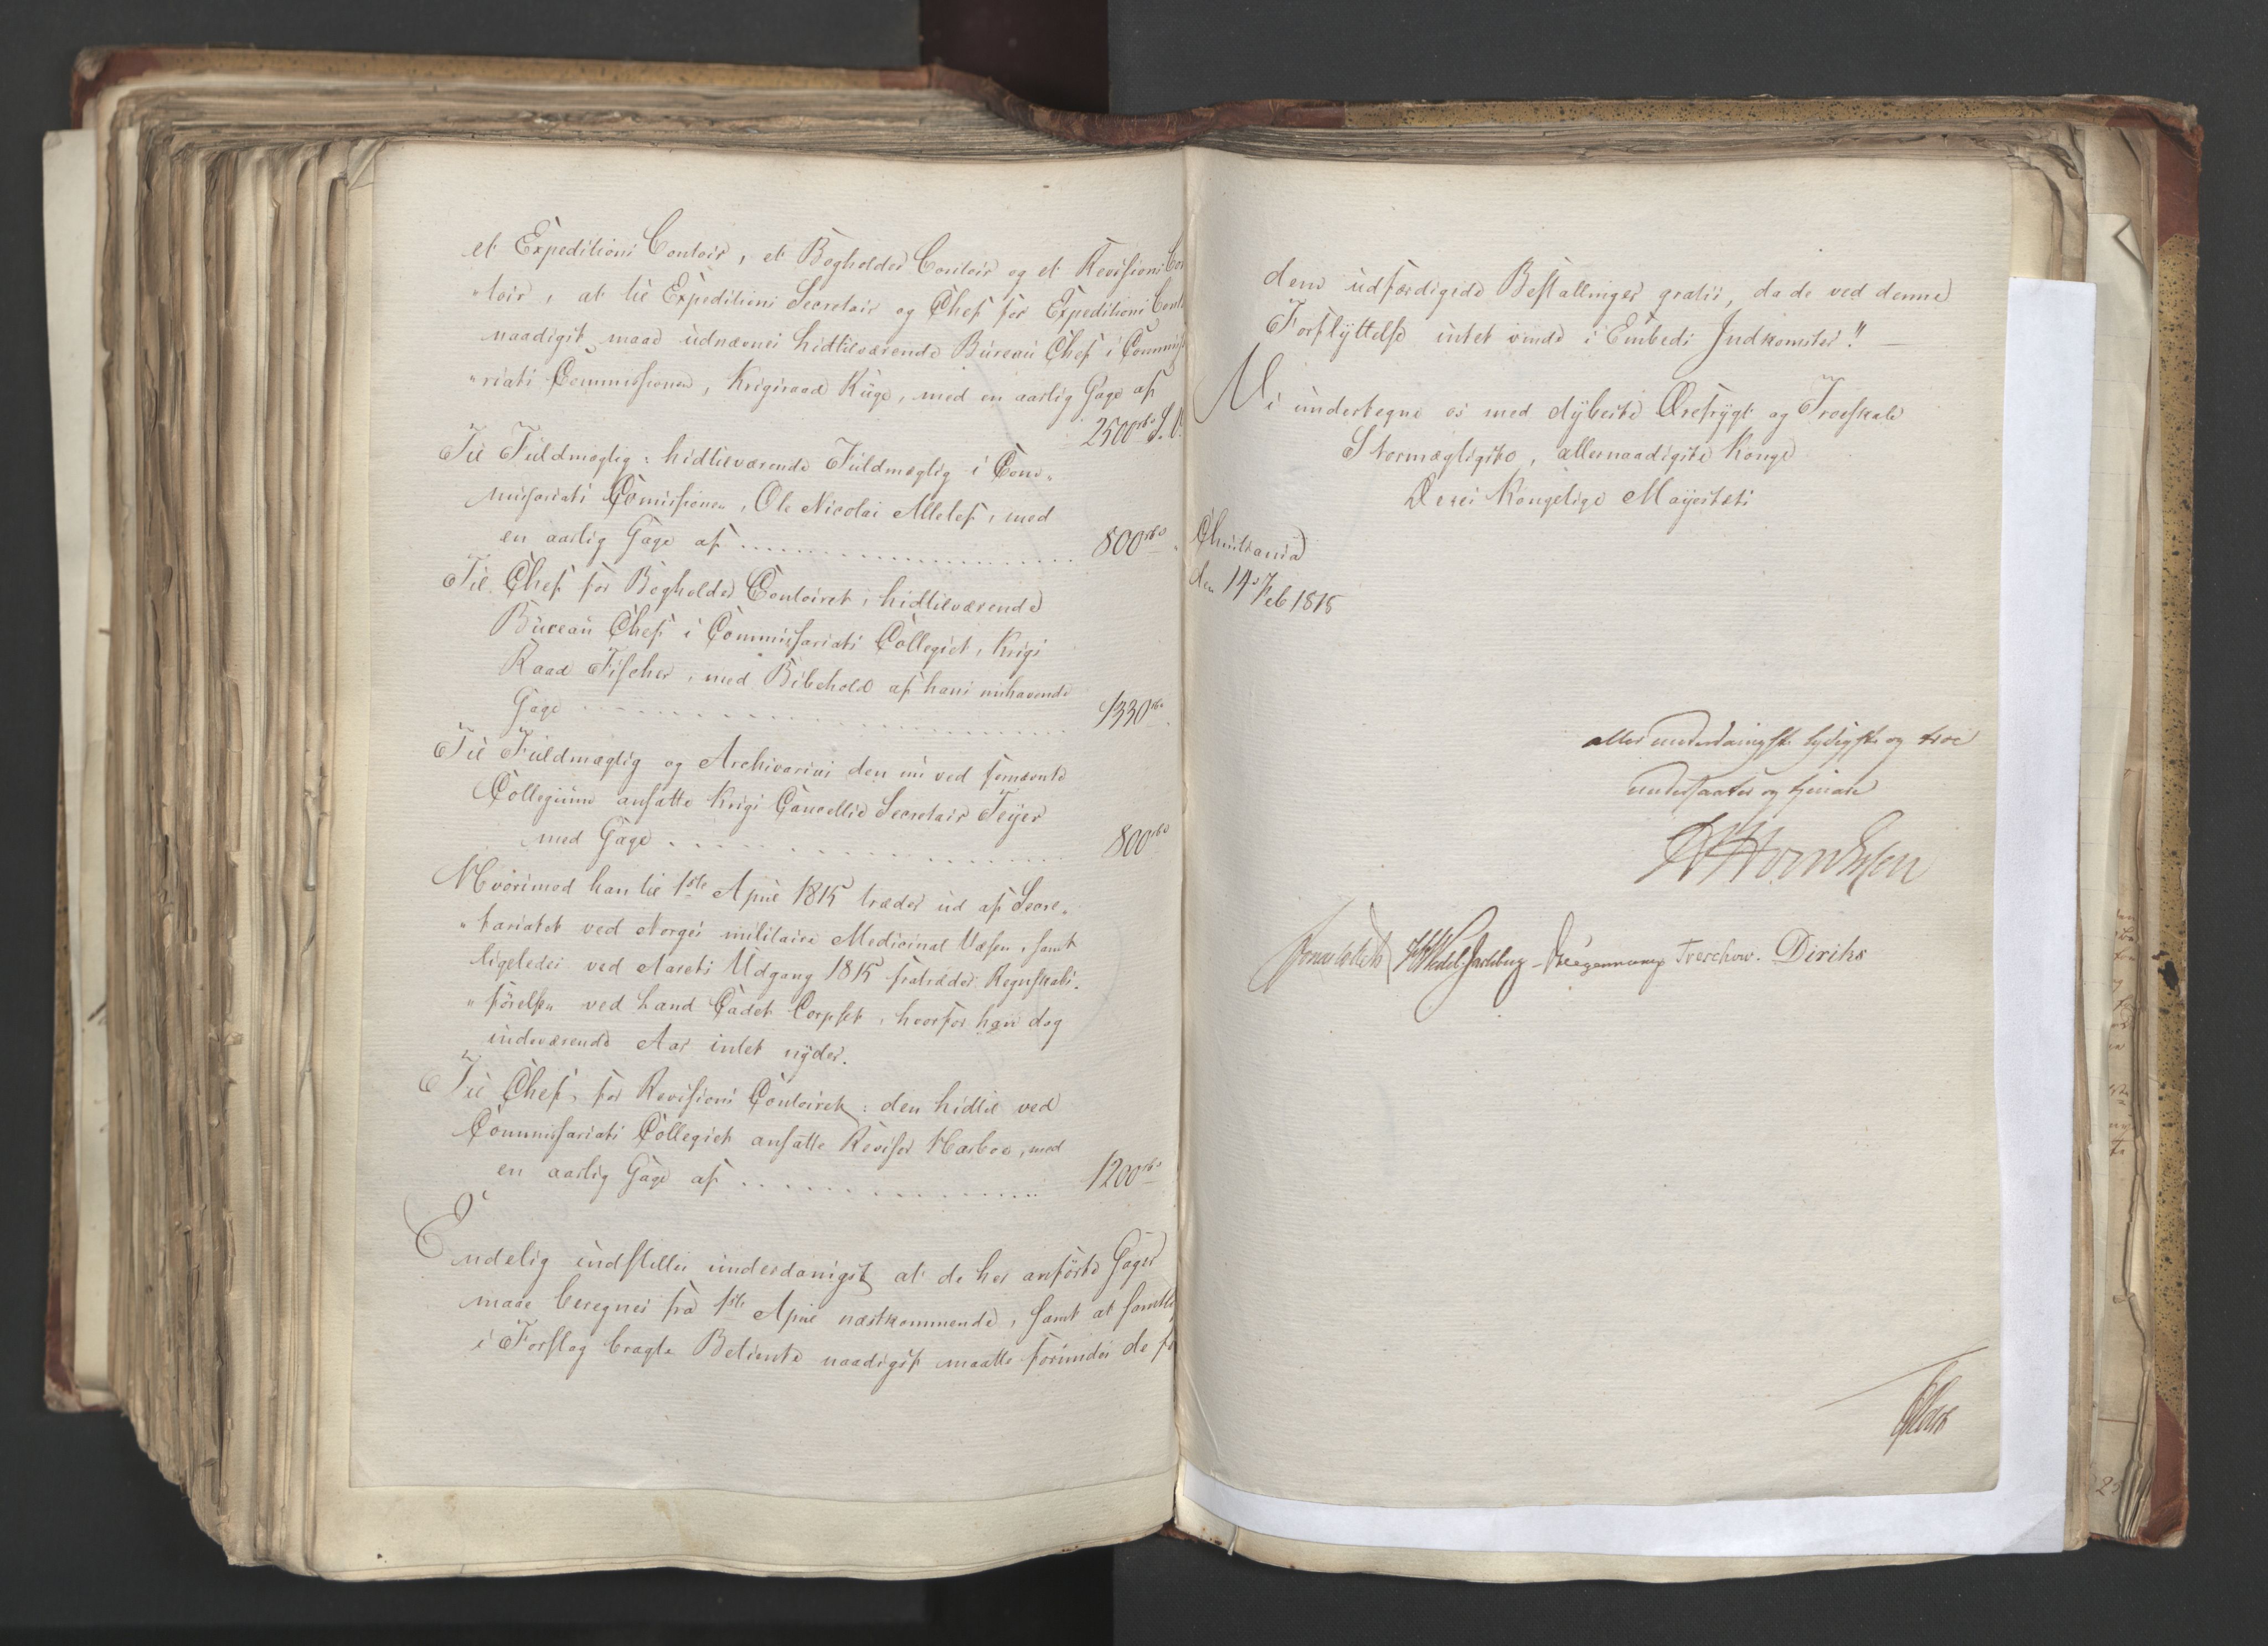 et Expeditions Contoir, et Bogholder Contoir og et Revisions Con
"toir, at til Expeditions Secretair og Chef for Expeditions Cont
naadigst maae udnævnes hidtilværende Büreau Chef i Commiss
"riats Commissionen, Krigsraad Rüge, med en aarlig Gage af
2500 rbd S. V.
Til Fuldmægtig: hidtilværende Fuldmægtig i Com„
missariats Comissionen, Ole Nicolai Allelef, med
en aarlig Gage af 800 rbd
Til Chef for Bogholder Contoiret, hidtilværende
Büreau Chef i Commissariats Collegiet, Krigs
Raad Fischer, med Bibehold af hans nuhavende
Gage 1330 rbd
Til Fuldmægtig og Archivarius den nu ved fornævnte
Collegium ansatte Krigs Cancellie Secretair Feyer
med Gage 800 rbd
Hvorimod han til 1ste April 1815 træder ud af Secre„
"tariatet ved Norges militaire Medicinal Væsen, samt
ligeledes ved Aarets Udgang 1815 fratræder Regnskabs.
"førelsen ved Land Cadet Corpset, hvorfor han dog
indeværende Aar intet nyder.
Til Chef, for Revisions Contoiret: den hidtil ved
Commissariats Collegiet ansatte Revisor Harboe, med
en aarlig Gage af 1200 rbd
Endelig indstilles underdanigst at de her anførte Gager
maae beregnes fra 1ste April næstkommende, samt at samtl
i Forslag bragte Betiente naadigst maatte forundes de fo
dem udfærdigede Bestallinger gratis, da de ved denne
Forflyttelse intet vinde i Embeds Indkomster!! —
Vi undertegne os med dybeste Ærefrygt og Troeskab
Stormægtigste, allernaadigste Konge
Deres Kongelige Mayestæts
Christiania
den 14de Feb 1815
aller underdanigste lydigste og troe
undersaatter og tjenere
Hornthsen
Jonas Collett HWedel Jarlsberg Treschow. Diriks